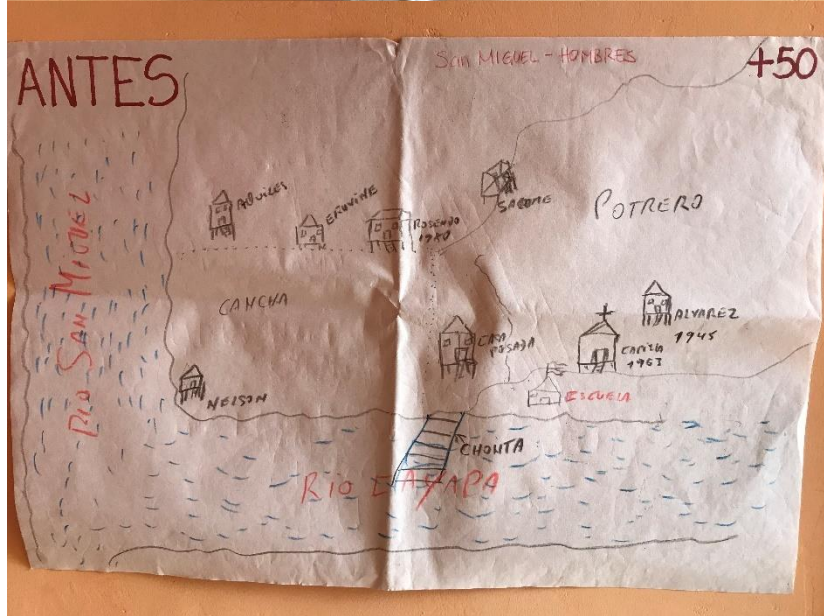 ANTES
San MIGUEL - HOMBRES
+50
RIO SAN MIGUEL
AQUILES
ERUVINE
ROSENDO
1980
SALOME
POTRERO
CANCHA
NELSON
CASA
POSADA
ALVAREZ
1945
CAPILLA
1963
ESCUELA
CHONTA
RIO CAYAPA